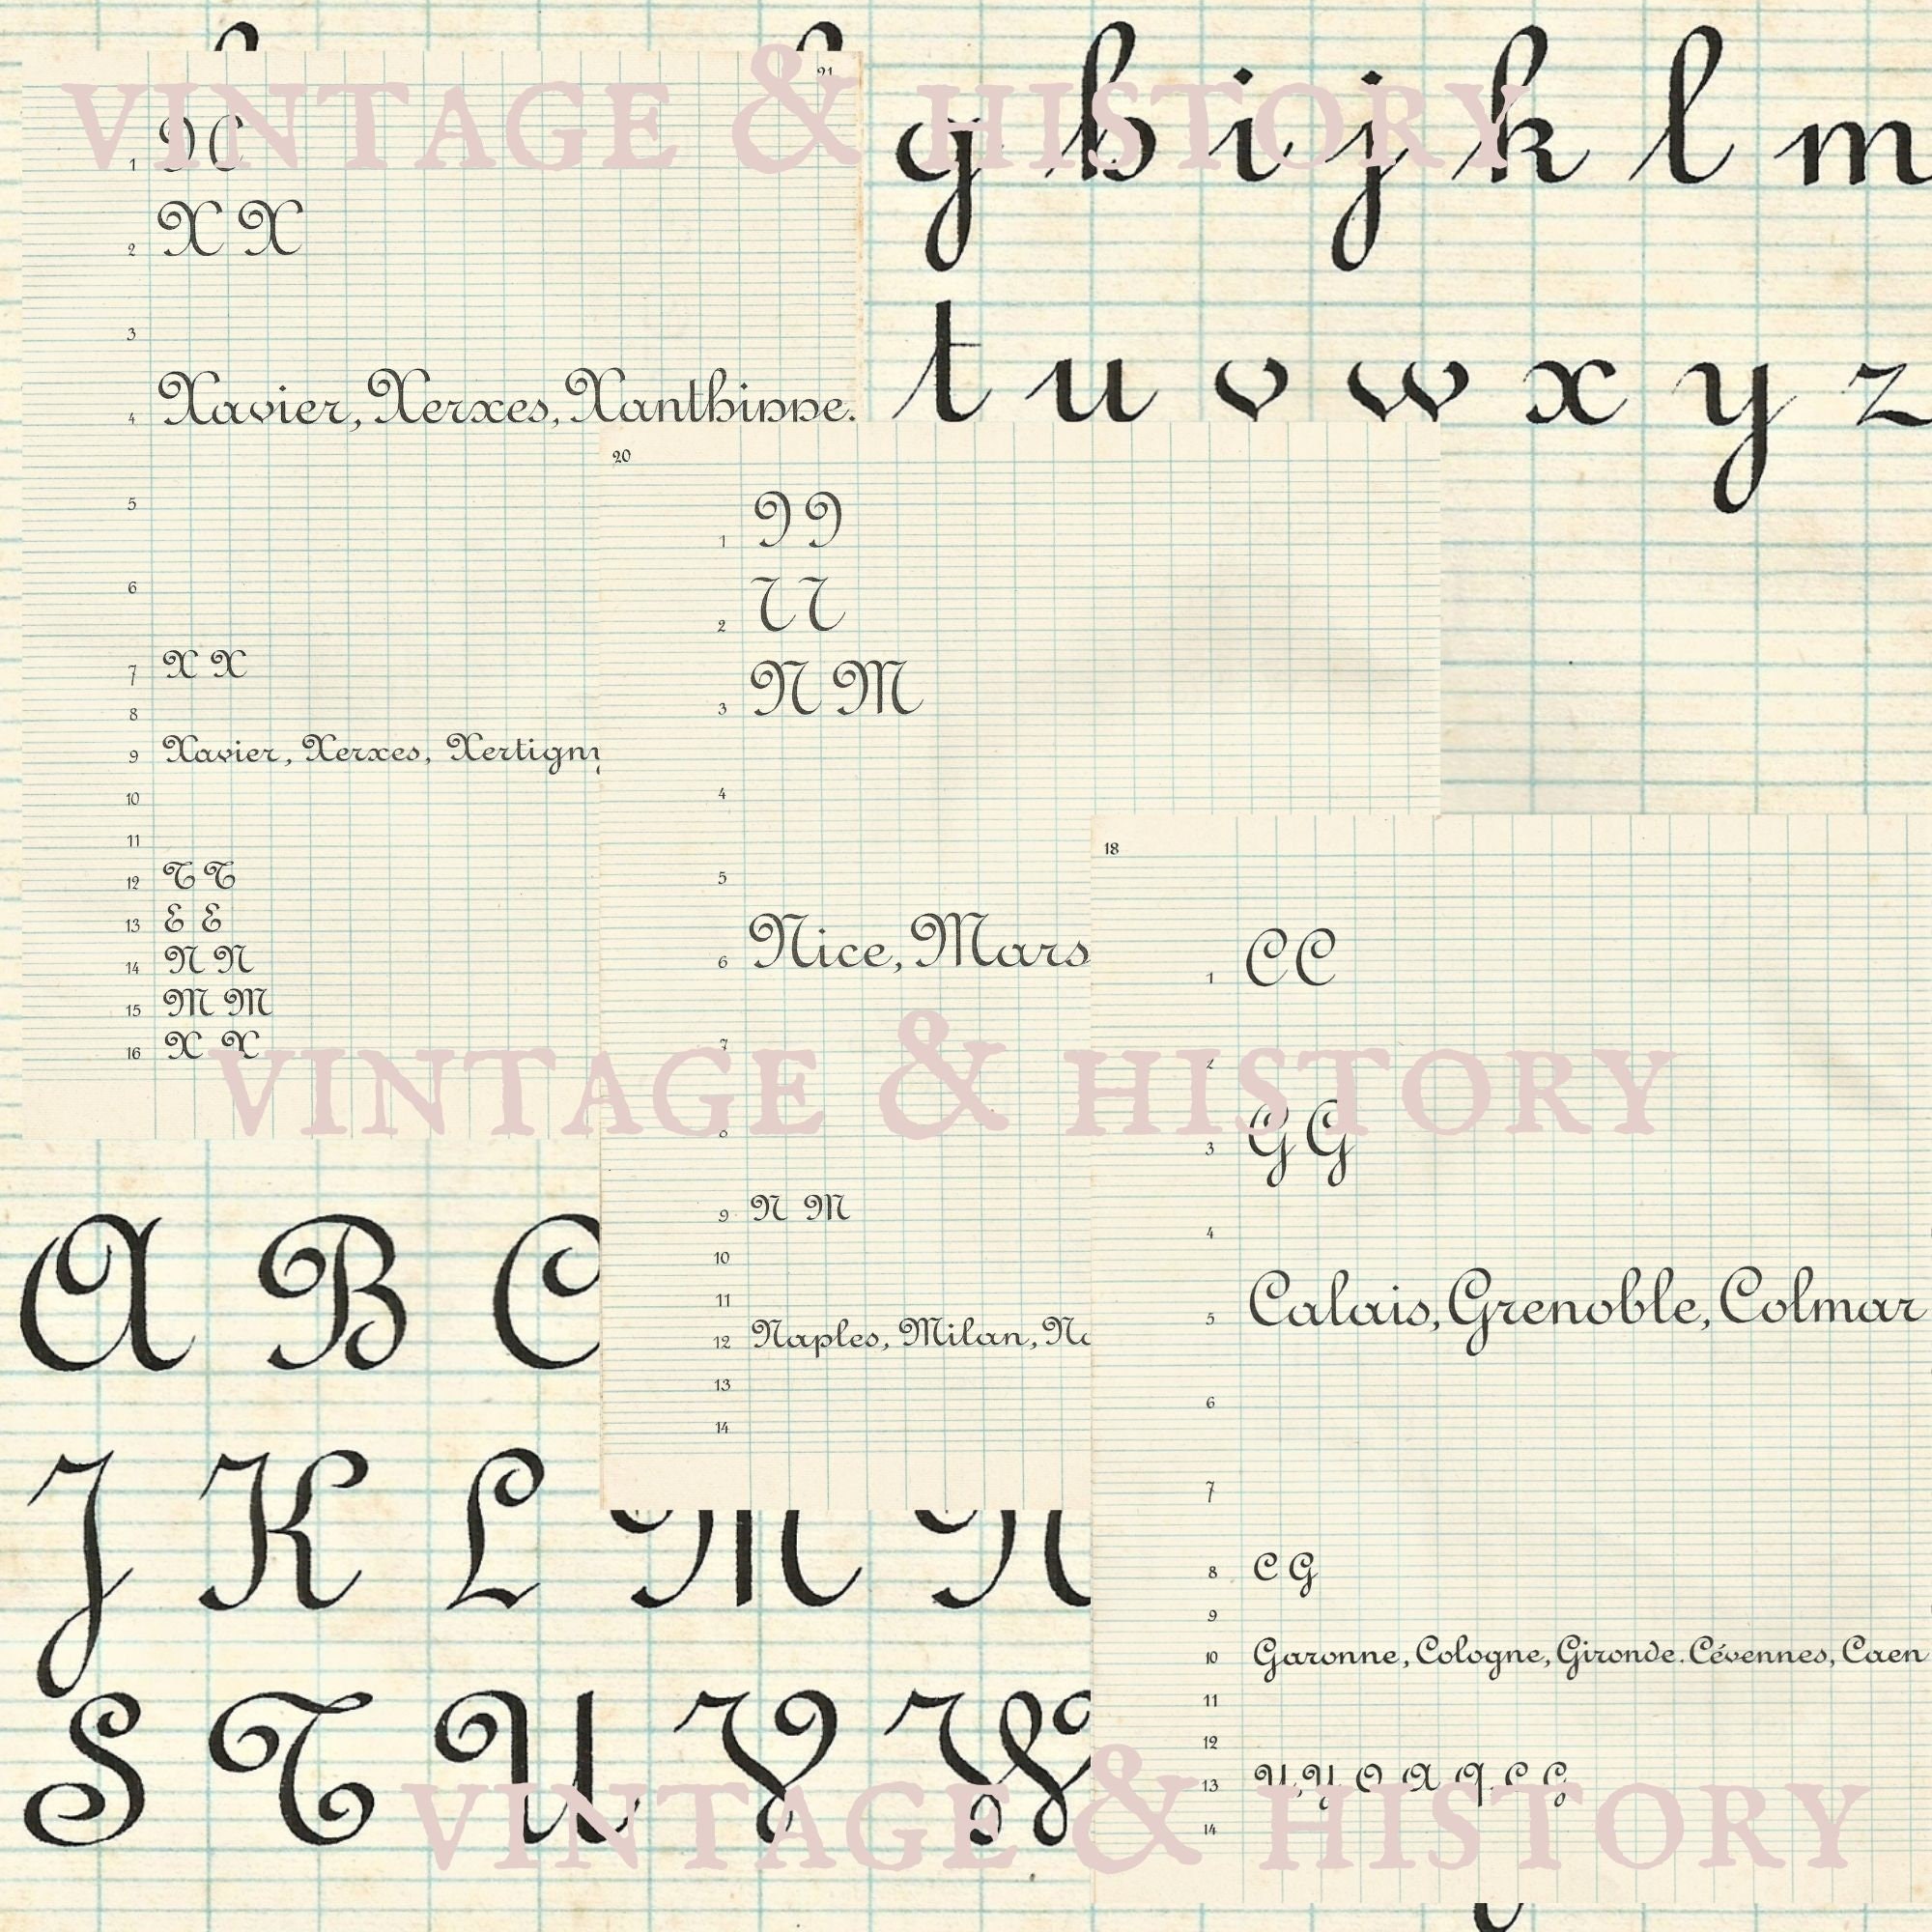 VINTAGE & HISTORY
21
1
2 X X
3
4 Xavier, Xerxes, Xanthippe.
5
6
7 X X
8
9 Xavier, Xerxes, Xertigny
10
11
12 T T
13 E E
14 N N
15 M M
16 X X
g h i j k l m
t u v w x y z
20
1
2
3 N M
4
5
6 Nice, Mars
7
8
9 N M
10
11
12 Naples, Milan, Na
13
14
18
1 C C
2
3 G G
4
5 Calais, Grenoble, Colmar
6
7
8 C G
9
10 Garonne, Cologne, Gironde. Cévennes, Caen
11
12
13 U, Y, O, A, Q, C G
14
VINTAGE & HISTORY
A B C
J K L M N
S T U V W
VINTAGE & HISTORY